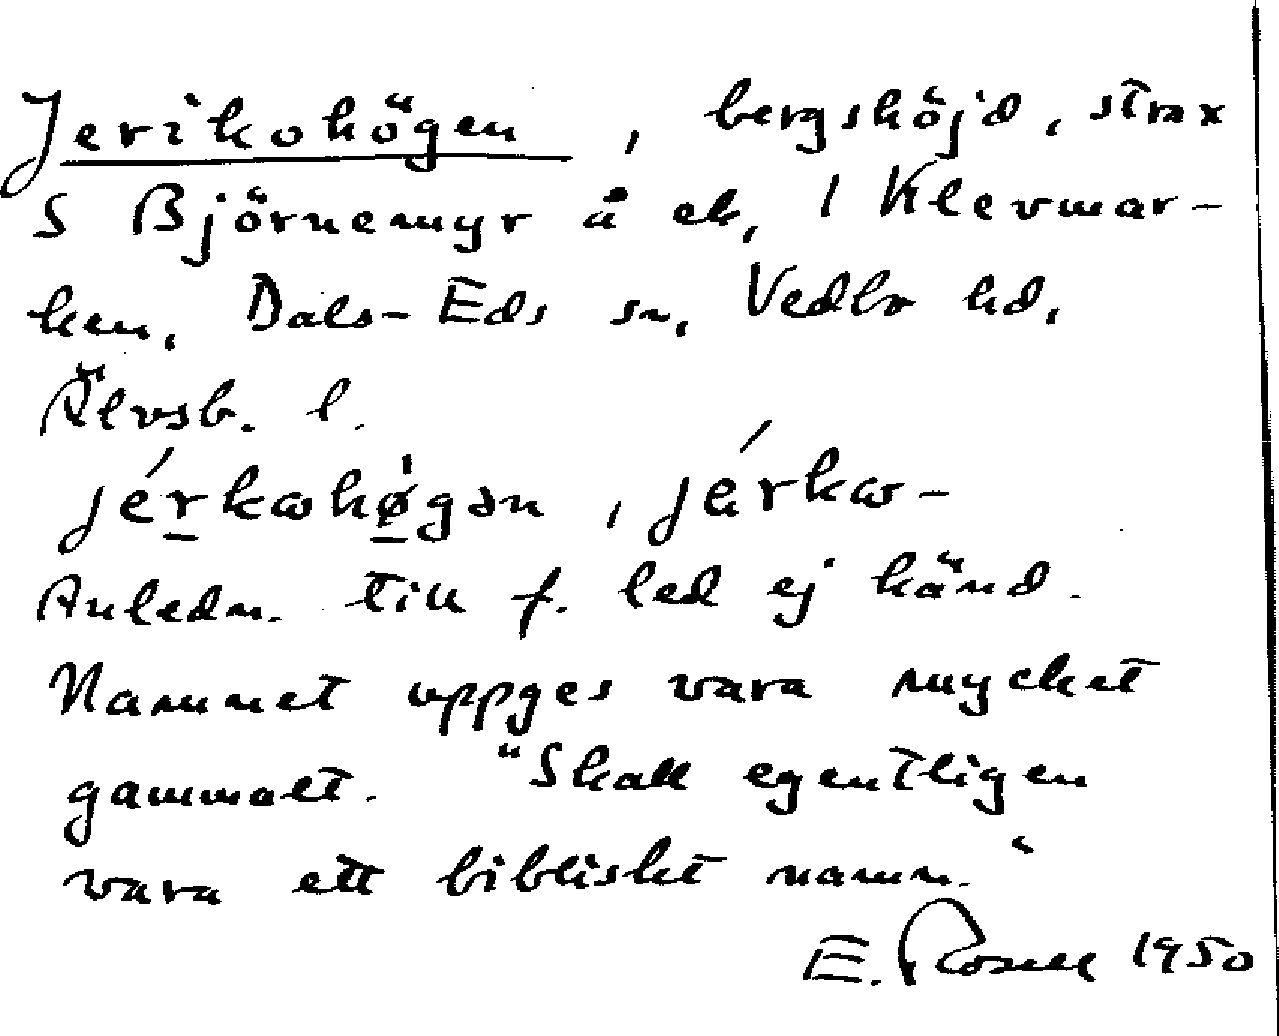 Jerikohögen, bergshöjd, strax
S Björnemyr å ek, 1 Klevmar-
ken, Dals-Eds sn, Vedbo hd,
Älvsb. l.
jérkωhø̀gən, járkω-
Anledn. till f. led ej känd.
Namnet uppges vara mycket
gammalt. "Skall egentligen
vara ett bibliskt namn."
E. Rosell 1950